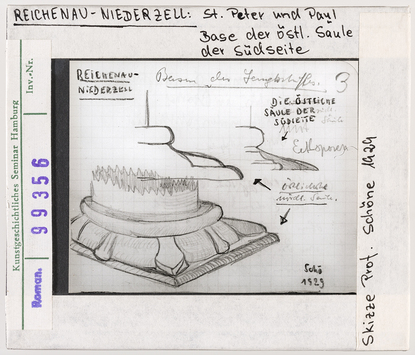 REICHENAU-NIEDERZELL: St. Peter und Paul
Base der östl. Säule
der Südseite
Kunstgeschichtliches Seminar Hamburg
Inv.-Nr.
Roman.
99356
REICHENAU-
NIEDERZELL
3
DIE ÖSTLICHE
SÄULE DER
SÜDSEITE
Schö
1929
Skizze Prof. Schöne 1929